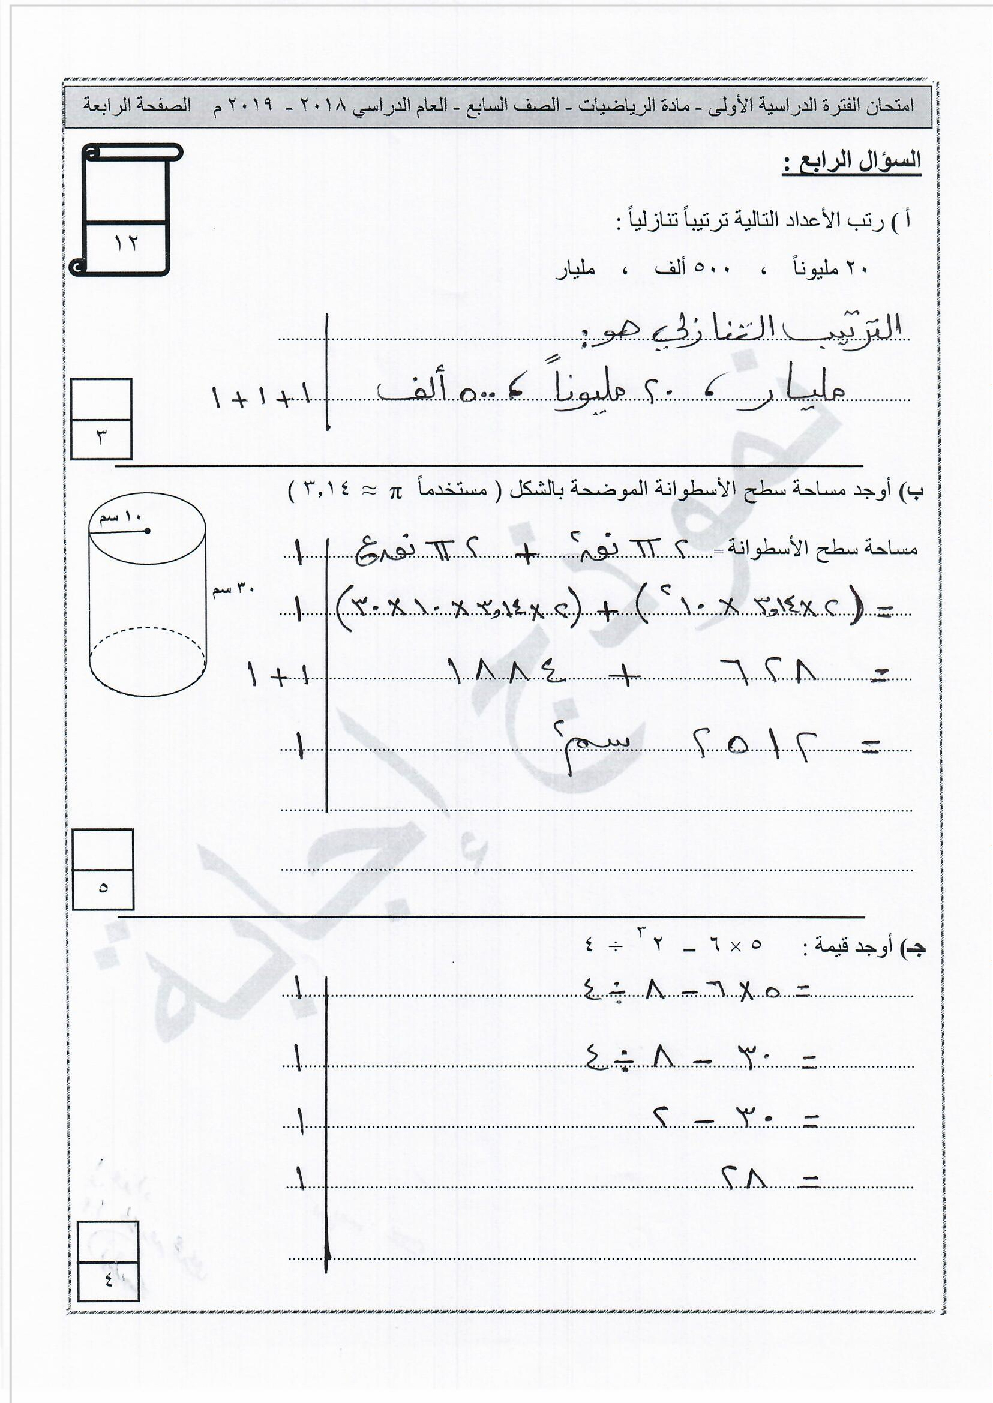 امتحان الفترة الدراسية الأولى - مادة الرياضيات - الصف السابع - العام الدراسي ٢٠١٨ - ٢٠١٩ م الصفحة الرابعة
السؤال الرابع :
١٢
أ ) رتب الأعداد التالية ترتيباً تنازلياً :
٢٠ مليوناً ، ٥٠٠ ألف ، مليار
الترتيب التنازلي هو :
مليار ، ٢٠ مليوناً ، ٥٠٠ ألف ١+١+١
٣
ب) أوجد مساحة سطح الأسطوانة الموضحة بالشكل ( مستخدماً π ≈ ٣,١٤ )
١٠ سم
٣٠ سم
مساحة سطح الأسطوانة = ٢ π نق٢ + ٢ π نق ع ١
= (٢ × ٣,١٤ × ١٠٢) + (٢ × ٣,١٤ × ١٠ × ٣٠) ١
= ٦٢٨ + ١٨٨٤ ١+١
= ٢٥١٢ سم٢ ١
٥
جـ) أوجد قيمة : ٥ × ٦ – ٢٣ ÷ ٤
= ٥ × ٦ – ٨ ÷ ٤ ١
= ٣٠ – ٨ ÷ ٤ ١
= ٣٠ – ٢ ١
= ٢٨ ١
٤
نموذج إجابة